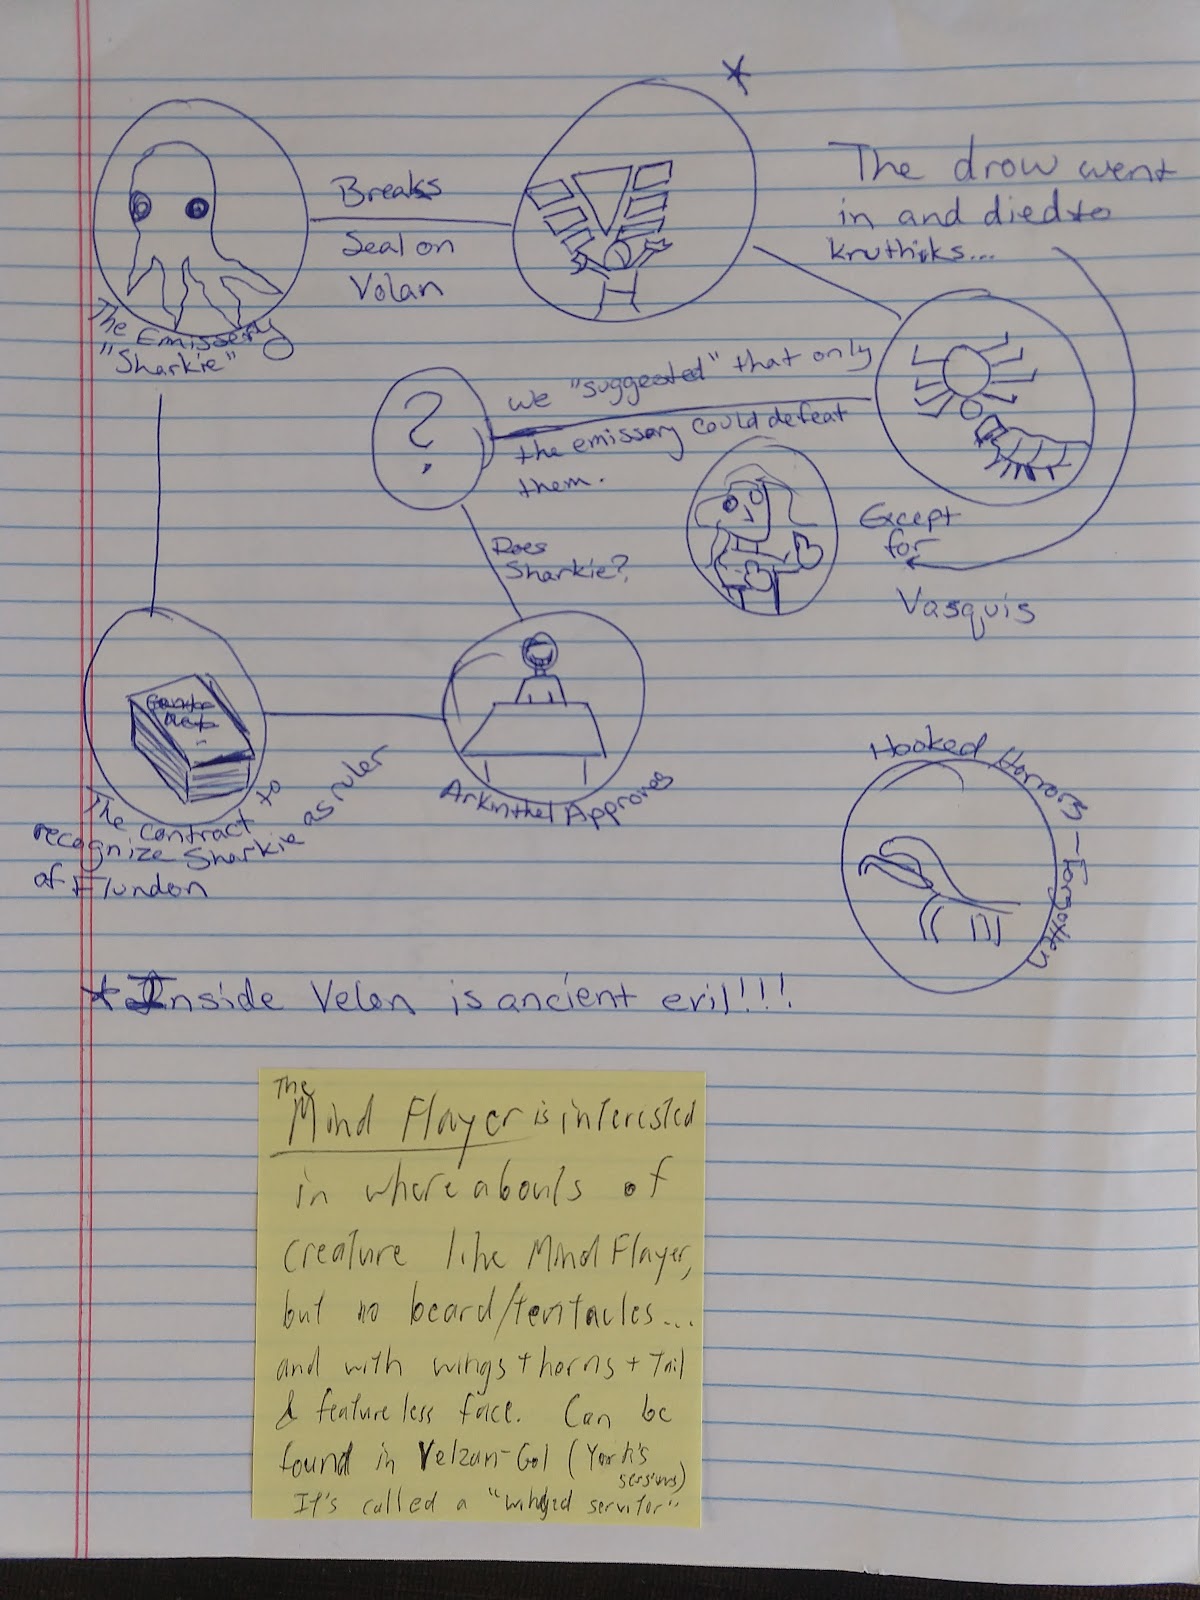 Breaks
Seal on
Volan
The drow went
in and died to
kruthiks...
The Emissery
"Sharkie"
?
we "suggested" that only
the emissery could defeat
them.
Except
for
Vasquis
Does
Sharkie?
The contract to
recognize Sharkie as ruler
of Flundon
Arkinthel Approves
Hooked Horrors - Forgotten
* Inside Velon is ancient evil!!!
The
Mind Flayer is interested
in whereabouts of
creature like Mind Flayer,
but no beard/tentacles...
and with wings + horns + Tail
& featureless face. Can be
found in Velzan-Gol (York's
sessions)
It's called a "winged servitor"